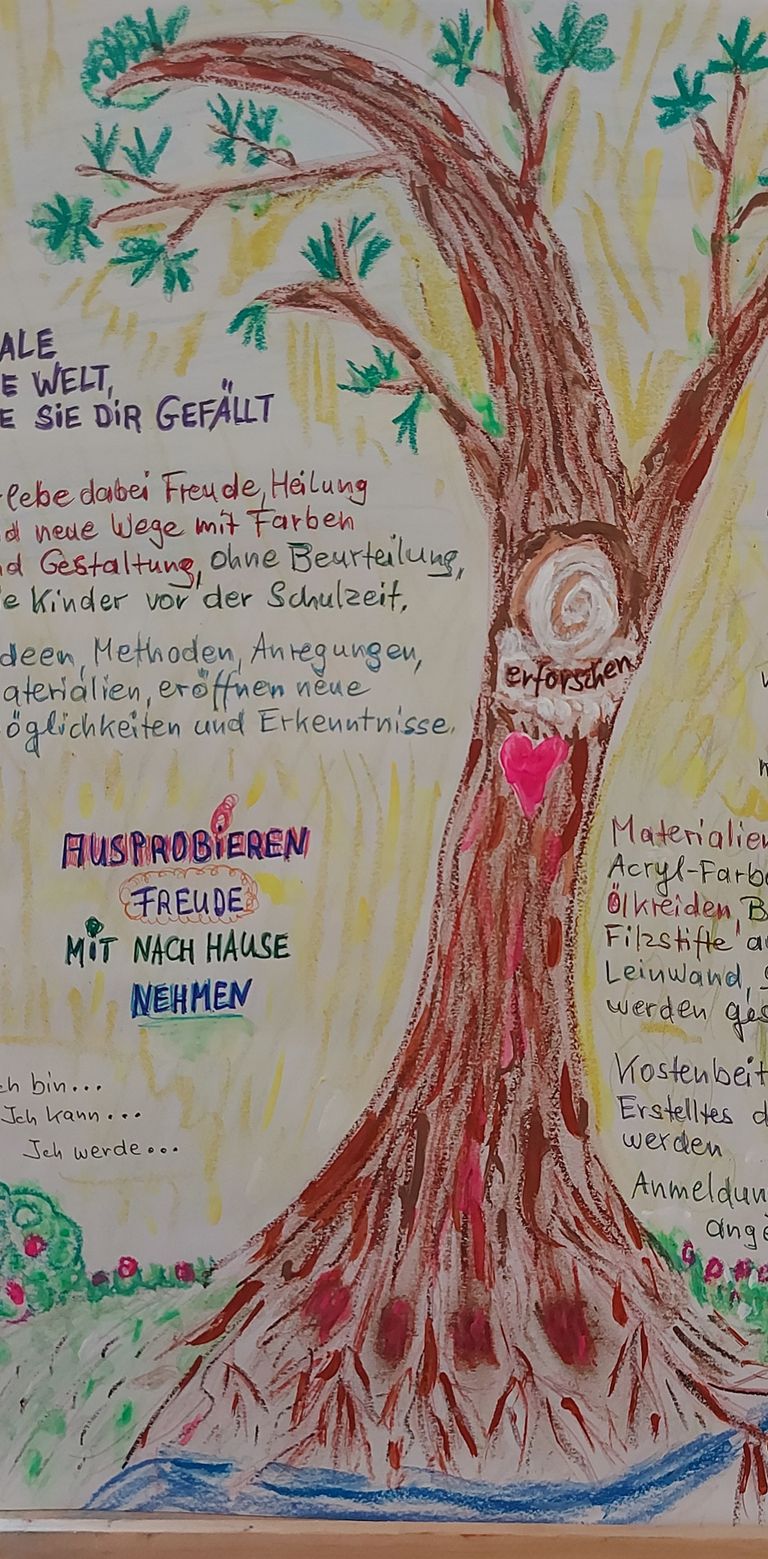 ALE
E WELT,
E SIE DIR GEFÄLLT
lebe dabei Freude, Heilung
d neue Wege mit Farben
nd Gestaltung, ohne Beurteilung,
e Kinder vor der Schulzeit.
deen, Methoden, Anregungen,
aterialien, eröffnen neue
öglichkeiten und Erkenntnisse.
AUSPROBIEREN
FREUDE
MIT NACH HAUSE
NEHMEN
ch bin...
Ich kann...
Ich werde...
erforschen
Materialien
Acryl-Farbe
Ölkreiden, B
Filzstifte a
Leinwand, S
werden ges
Kostenbeit
Erstelltes d
werden
Anmeldun
ange